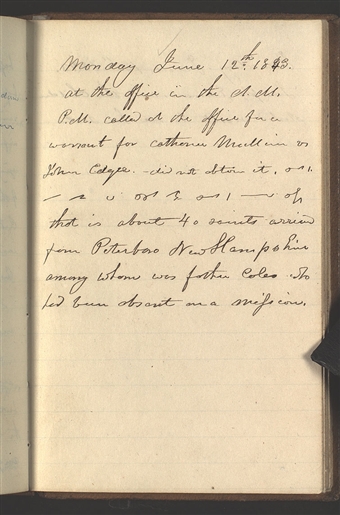 Monday June 12th 1843.
at the office in the A.M.
P.M. called at the office for a
warrant for Catharine Mullin vs
John Edger. did not obtain it,
that is about 40 saints arrived
from Peterboro New Hampshire
among whom was father Coles who
had been absent on a mission.